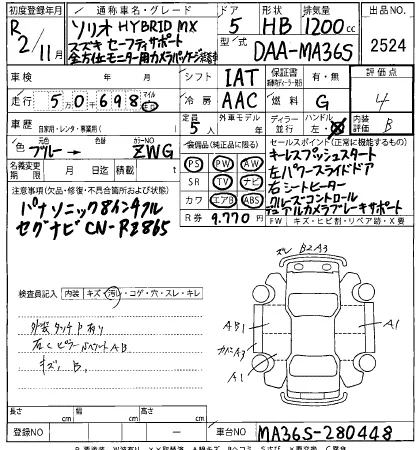 初度登録年月 通称車名・グレード ドア 形状 排気量 出品NO.
R 2/11月 ソリオ HYBRID MX 5 HB 1200cc 2524
スズキ セーフティサポート
全方位モニター用カメラパッケージ装着車 型式 DAA-MA36S
車検 年 月 シフト IAT 保証書 有・無 評価点
走行 5万0千698 マイル 冷房 AAC 燃料 G 4
車歴 自家用・レンタ・事業用( ) 定員 5人 外車モデル 年 ディーラー 並行 ハンドル 左・右 内装評価 B
色 ブルー→ 色替 カラーNO ZWG 装備品(純正品に限る) セールスポイント(正常に機能するもの)
PS PW AW キーレスプッシュスタート
名義変更期限 月 日 積載 t SR TV ナビ 左パワースライドドア
右シートヒーター
注意事項(欠品・修復・不具合箇所および状態) カワ エアB ABS クルーズコントロール
パナソニック8インチフル R券 9.770円 デュアルカメラブレーキサポート
セグナビ CN-R2865 FW キズ・ヒビ割・リペア跡・X要
検査員記入 内装 キズ・汚レ・コゲ・穴・スレ・キレ
外装タッチP有り
右Cピラー AB
キズ B.
ズレ B2A3
AB1 A1
カバンA3
A1
長さ cm 幅 cm 高さ cm
登録NO 車台NO MA36S-280448